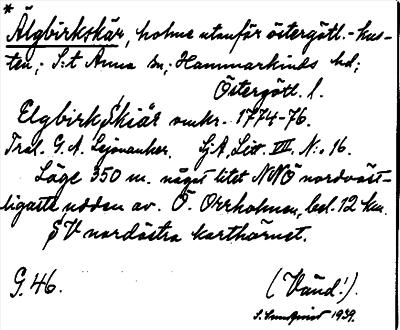 *
Älgbirkskär, holme utanför östergötl.-kus-
ten; S:t Anna sn; Hammarkinds hd;
Östergötl. l.
Elgbirkskiär omkr. 1774-76.
Tral. G. A. Lejonanker. Sj.A. Litt. VII, N:o 16.
Läge 350 m. något litet NNÖ nordväst-
ligaste udden av Ö. Orrholmen, bel. 12 km.
SV nordöstra karthörnet.
G. 46.
(Vänd!).
1939.